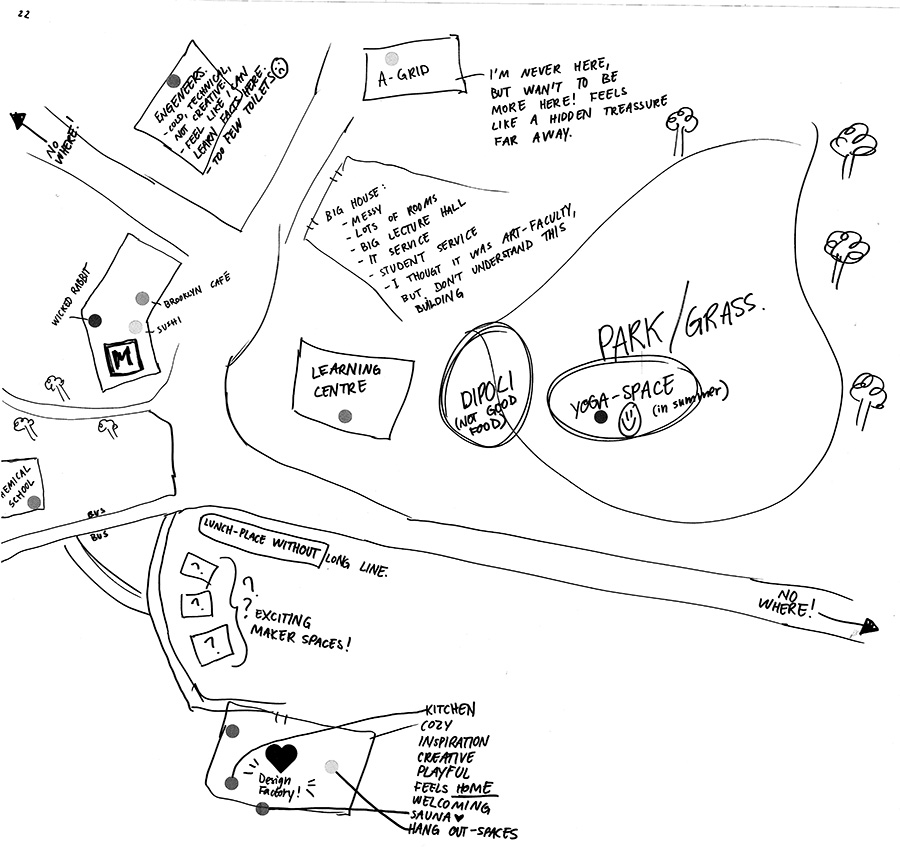 22
NO
WHERE!
ENGENEERS.
- COLD, TECHNICAL,
NOT CREATIVE.
- FEEL LIKE I CAN
LEARN FACTS HERE.
- TOO FEW TOILETS
A-GRID
I'M NEVER HERE,
BUT WAN'T TO BE
MORE HERE! FEELS
LIKE A HIDDEN TREASSURE
FAR AWAY.
BIG HOUSE:
- MESSY
- LOTS OF ROOMS
- BIG LECTURE HALL
- IT SERVICE
- STUDENT SERVICE
- I THOUGT IT WAS ART-FACULTY,
BUT DON'T UNDERSTAND THIS
BUILDING
WICKED RABBIT
BROOKLYN CAFÉ
SUSHI
M
LEARNING
CENTRE
DIPOLI
(NOT GOOD
FOOD)
PARK/GRASS.
YOGA-SPACE
(in summer)
HEMICAL
SCHOOL
BUS
BUS
LUNCH-PLACE WITHOUT LONG LINE.
?
?
?
?
?
EXCITING
MAKER SPACES!
NO
WHERE!
Design
Factory!
KITCHEN
COZY
INSPIRATION
CREATIVE
PLAYFUL
FEELS HOME
WELCOMING
SAUNA ♥
HANG OUT-SPACES